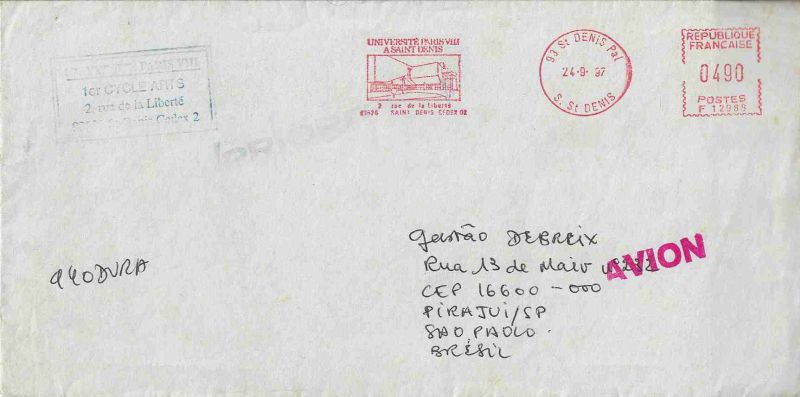 UNIVERSITÉ PARIS VIII
1er CYCLE ARTS
2, rue de la Liberté
Cedex 2
UNIVERSITÉ PARIS VIII
A SAINT DENIS
2 rue de la Liberté
93526 SAINT DENIS CEDEX 02
93 St DENIS Pal
24-9-97
S. St DENIS
REPUBLIQUE
FRANCAISE
0490
POSTES
F 12988
Gastão DEBREIX
Rua 13 de Maio nº 232
CEP 16600-000
PIRAJUI/SP
SAO PAOLO.
BRÉSIL
AVION